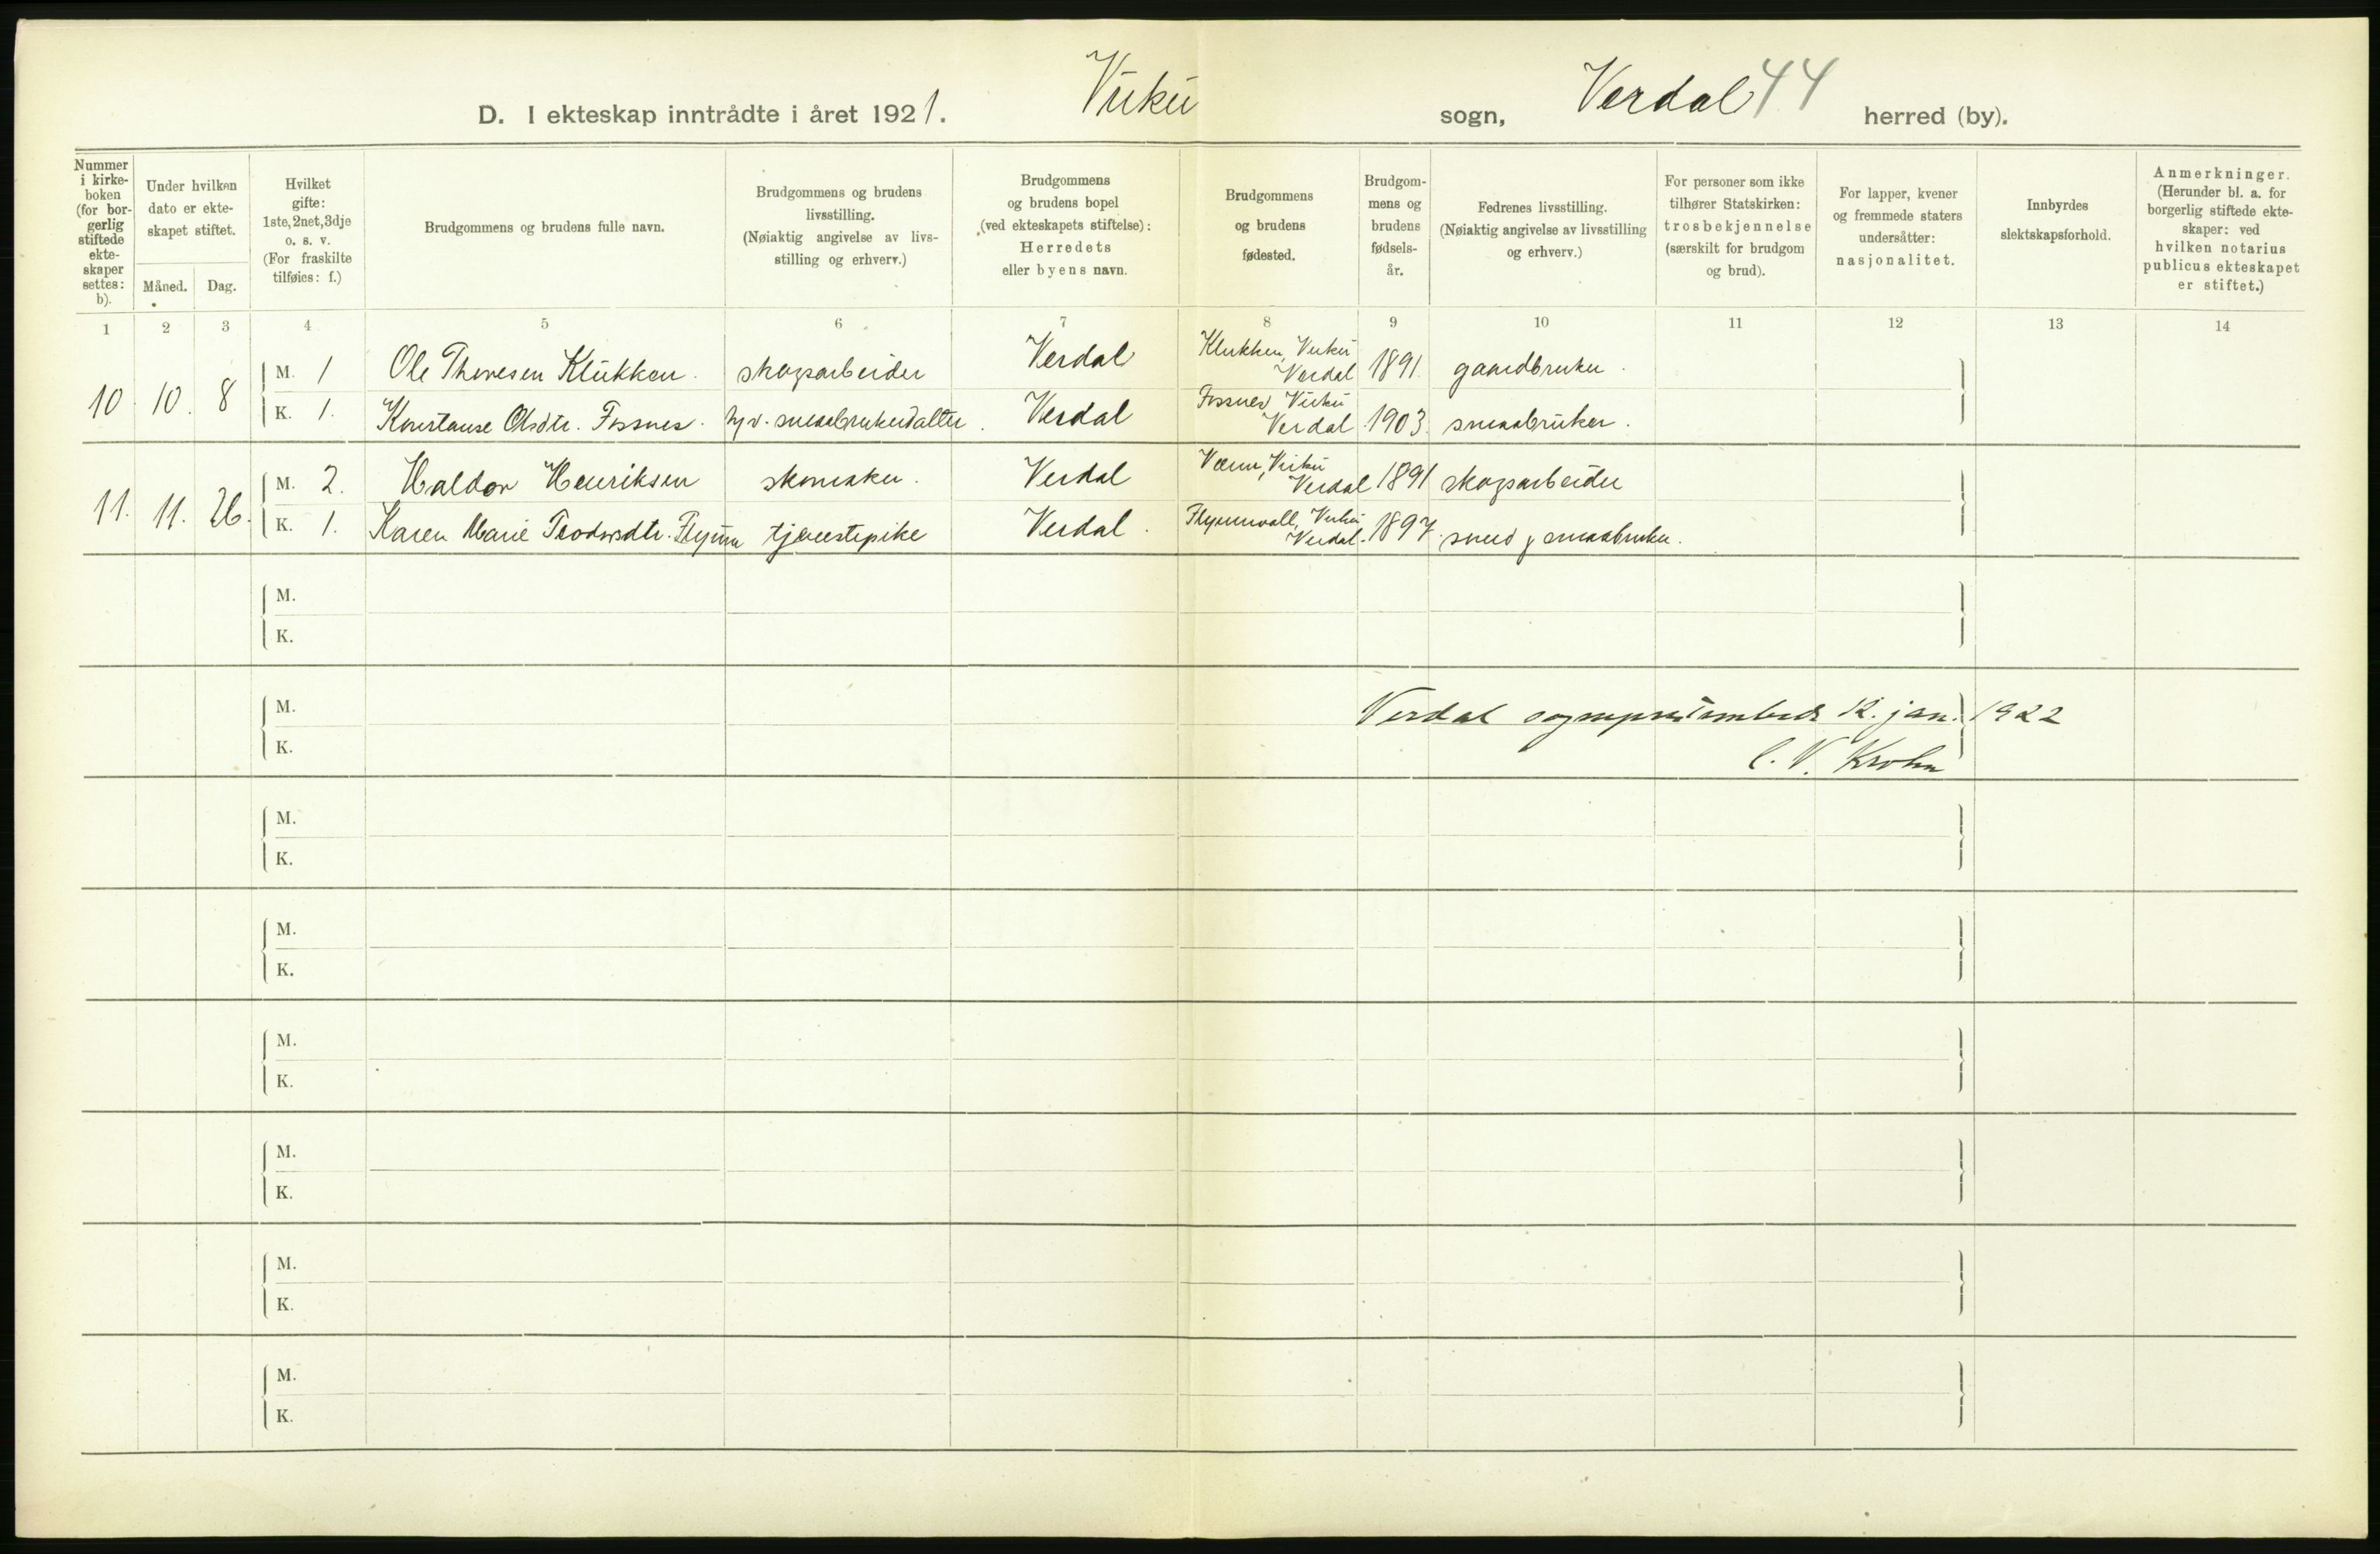 D. I ekteskap inntrådte i året 1921. Vuku sogn, Verdal 44 herred (by).
Nummer i kirke-boken (for bor-gerlig stiftede ekte-skaper settes: b).
Under hvilken dato er ekte-skapet stiftet.
Måned. Dag.
Hvilket gifte: 1ste, 2net, 3dje o. s. v. (For fraskilte tilføies: f.)
Brudgommens og brudens fulle navn.
Brudgommens og brudens livsstilling. (Nøiaktig angivelse av livs-stilling og erhverv.)
Brudgommens og brudens bopel (ved ekteskapets stiftelse): Herredets eller byens navn.
Brudgommens og brudens fødested.
Brudgom-mens og brudens fødsels-år.
Fedrenes livsstilling. (Nøiaktig angivelse av livsstilling og erhverv.)
For personer som ikke tilhører Statskirken: trosbekjennelse (særskilt for brudgom og brud).
For lapper, kvener og fremmede staters undersåtter: nasjonalitet.
Innbyrdes slektskapsforhold.
Anmerkninger. (Herunder bl. a. for borgerlig stiftede ekte-skaper: ved hvilken notarius publicus ekteskapet er stiftet.)
1 2 3 4 5 6 7 8 9 10 11 12 13 14
10. 10. 8
M. 1 Ole Thoresen Klukken. skogsarbeider Verdal Klukken, Vuku Verdal 1891. gaardbruker.
K. 1. Konstanse Olsdtr. Fossnes. hj. v. smaabrukerdatter. Verdal Fossnes, Vuku Verdal 1903. smaabruker.
11. 11. 26.
M. 2. Haldor Henriksen skomaker. Verdal Værn, Vuku Verdal 1891 skogsarbeider
K. 1. Karen Marie Teodorsdtr. tjenestepike Verdal. Vuku Verdal. 1897. smed smaabruker.
M.
K.
M.
K.
Verdal sogneprestembede 12. jan. 1922
C. V. Krohn
M.
K.
M.
K.
M.
K.
M.
K.
M.
K.
M.
K.